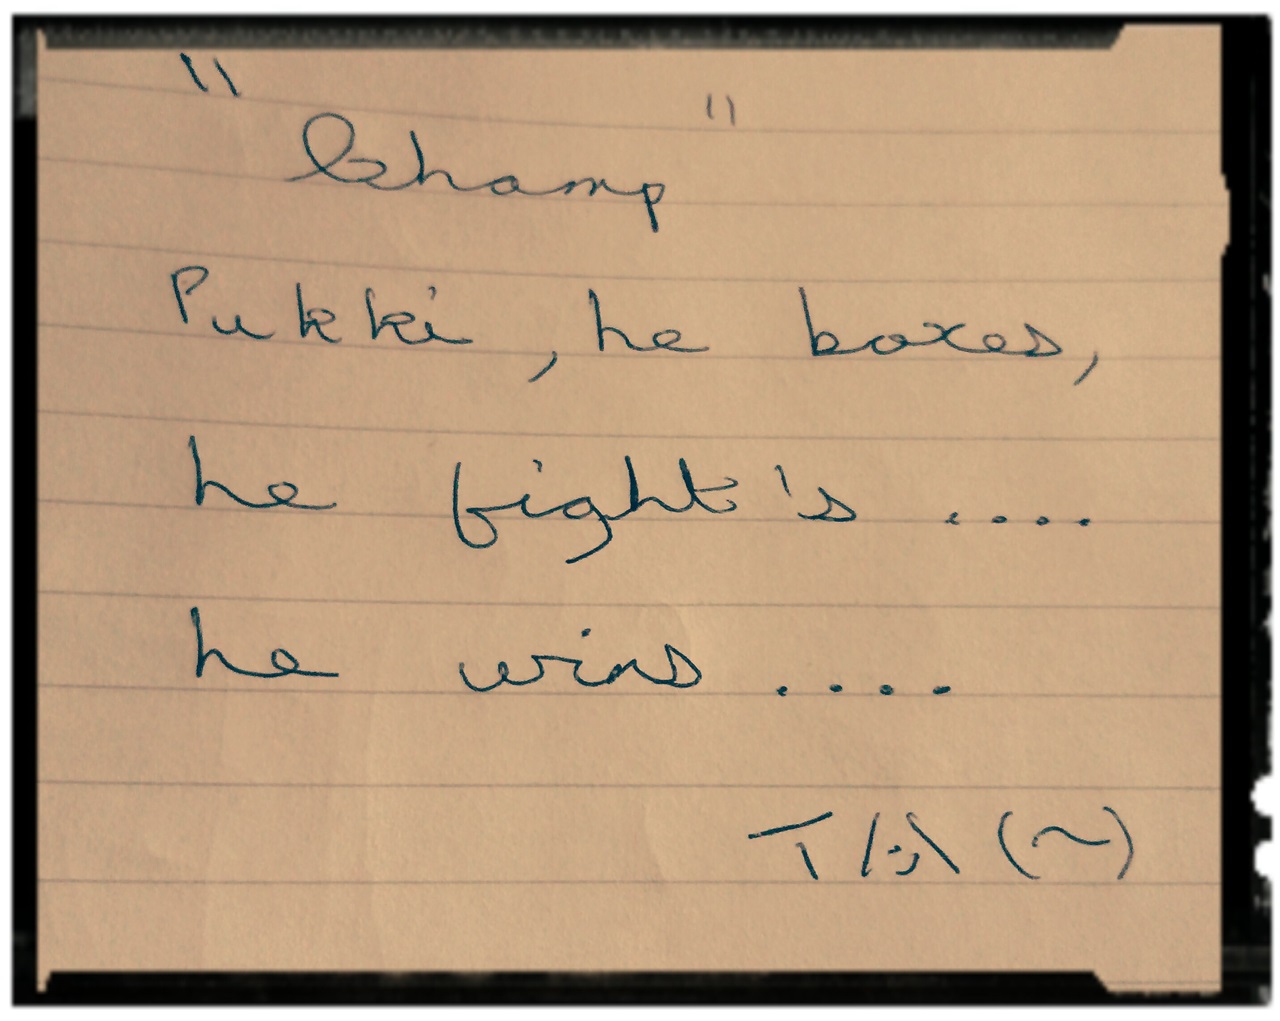 "Champ"
Pukki, he boxes,
he fight's ....
he wins ....